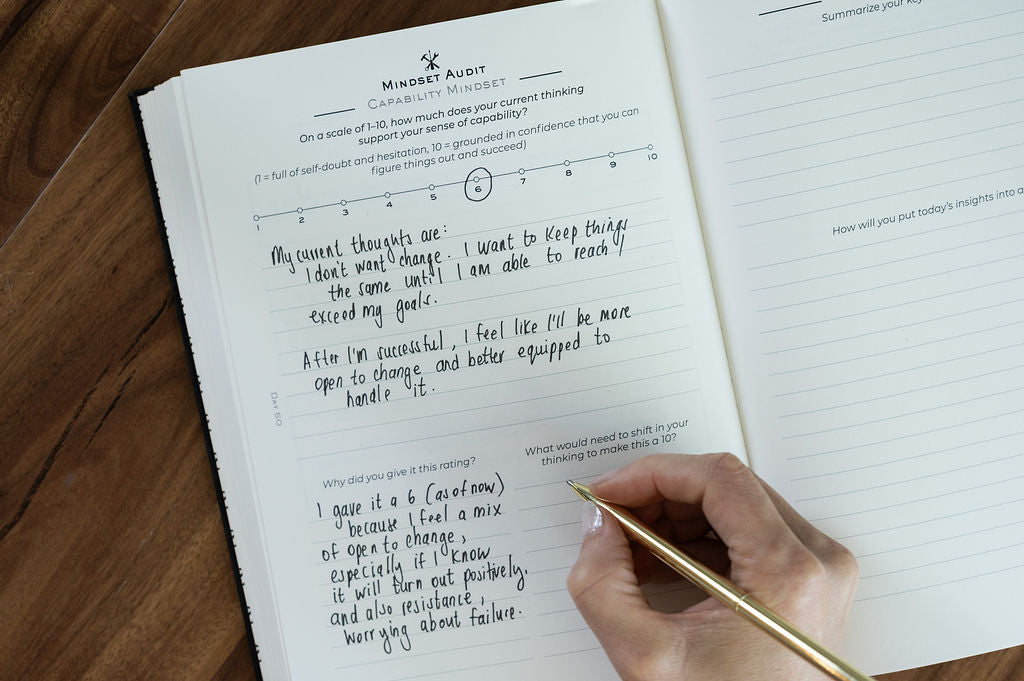 MINDSET AUDIT
CAPABILITY MINDSET
On a scale of 1–10, how much does your current thinking
support your sense of capability?
(1 = full of self-doubt and hesitation, 10 = grounded in confidence that you can
figure things out and succeed)
1 2 3 4 5 6 7 8 9 10
My current thoughts are:
I don't want change. I want to keep things
the same until I am able to reach /
exceed my goals.
After I'm successful, I feel like I'll be more
open to change and better equipped to
handle it.
DAY 60
Why did you give it this rating?
I gave it a 6 (as of now)
because I feel a mix
of open to change,
especially if I know
it will turn out positively.
and also resistance,
worrying about failure.
What would need to shift in your
thinking to make this a 10?
Summarize your
How will you put today's insights into